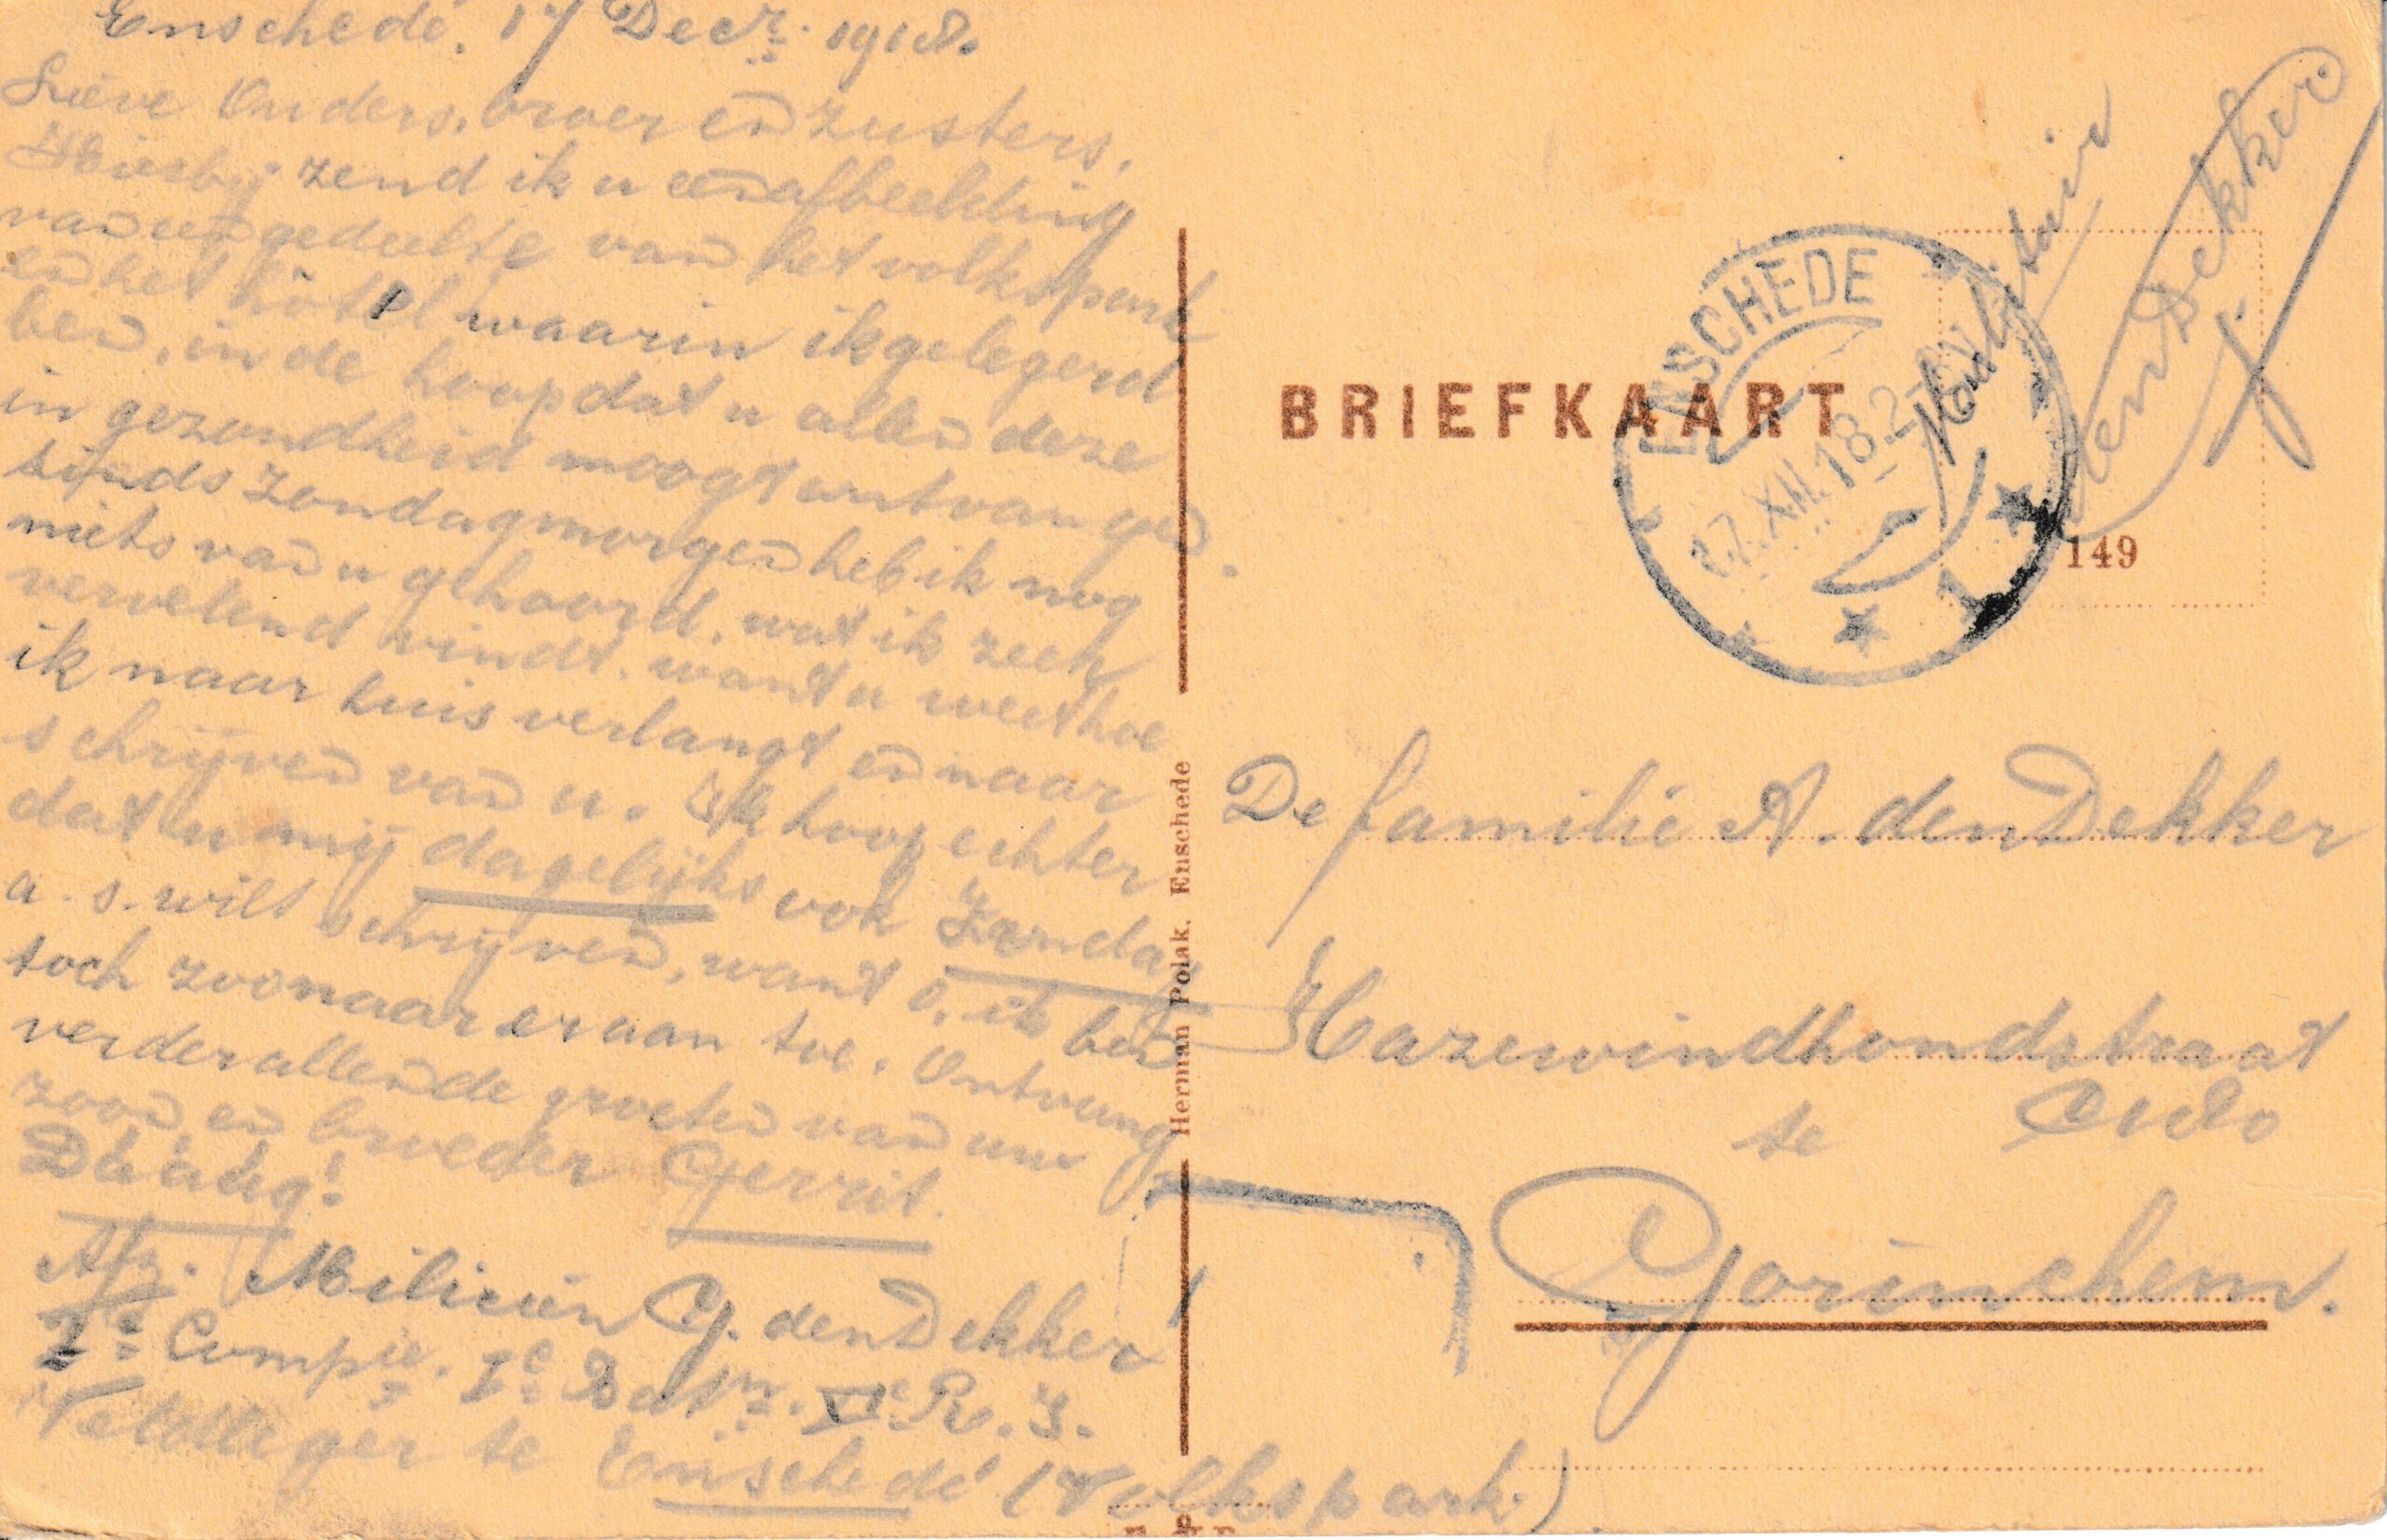 Enschedé. 17 Decr. 1918.
Lieve Ouders, broer en zusters,
Hierbij zend ik u een afbeelding
van een gedeelte van het volkspark
en het hôtel waarin ik gelegerd
ben, in de hoop dat u allen deze
in gezondheid moogt ontvangen.
Sinds Zondagmorgen heb ik nog
niets van u gehoord, wat ik zeer
vervelend vindt, want u weet hoe
ik naar huis verlangt en naar
schrijven van u. Ik hoop echter
dat u mij dagelijks ook Zondag
a.s. wilt schrijven, want o, ik ben
toch zoo naar er aan toe. Ontvang
verder allen de groeten van uw
zoon en broeder Gerrit.
Dháág!
Afz. Milicien G. den Dekker
Ie Compie. Ie Batn. VIe R. I.
Veldleger te Enschedé (Volkspark).
BRIEFKAART
ENSCHEDE
17.XII.18.2-
1
Militair
den Dekker
149
De familie A. den Dekker
Hazewindhondstraat
te
Gorinchem.
Herman Polak. Enschede